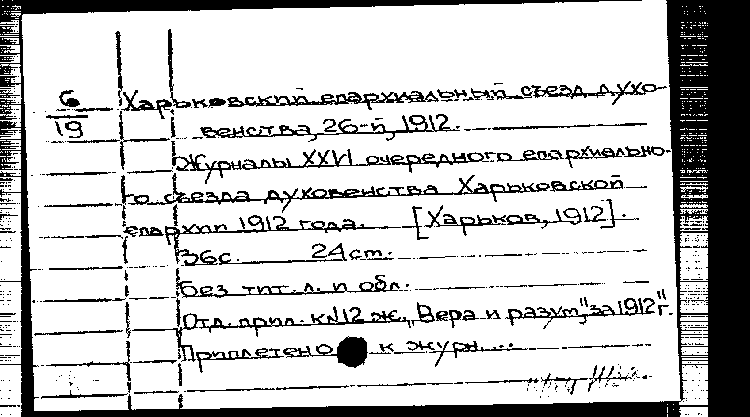 6
19
Харьковский епархиальный съезд духо-
венства, 26-й, 1912.
Журналы XXVI очередного епархиально-
го съезда духовенства Харьковской
епархии 1912 года. [Харьков, 1912].
36с. 24см.
Без тит. л. и обл.
Отд. прил. к №12 ж. „Вера и разум," за 1912 г.
Приплетено к журн....